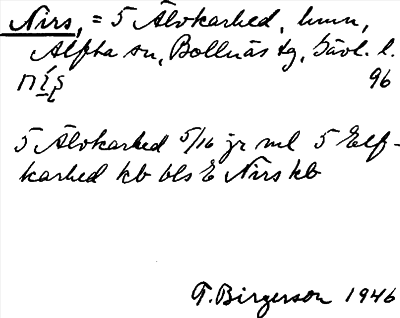 Nirs, = 5 Älvkarhed, hmn,
Alfta sn, Bollnäs tg, Gävl. l.
96
5 Älvkarhed 5/16 jr ml 5 Elf-
karhed kb bls E Nirs kb
T. Birgerson 1946